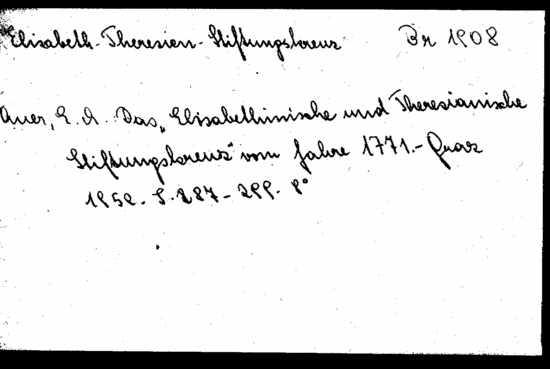 Elisabeth-Theresien-Stiftungskreuz Br 1908
Auer, E. A. Das „Elisabethinische und Theresianische
Stiftungskreuz" vom Jahre 1771.-
1952. S. 287-299. 8°